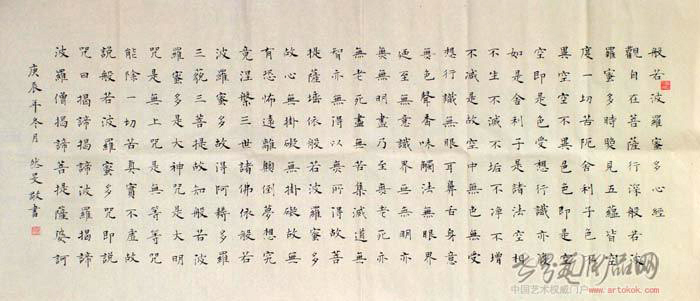 般若波羅蜜多心經
觀自在菩薩行深般若波
羅蜜多時照見五蘊皆空
度一切苦厄舍利子色不
異空空不異色色即是空
空即是色受想行識亦復
如是舍利子是諸法空相
不生不滅不垢不淨不增
不滅是故空中無色無受
想行識無眼耳鼻舌身意
無色聲香味觸法無眼界
乃至無意識界無無明亦
無無明盡乃至無老死亦
無老死盡無苦集滅道無
智亦無得以無所得故菩
提薩埵依般若波羅蜜多
故心無掛礙無掛礙故無
有恐怖遠離顛倒夢想究
竟涅槃三世諸佛依般若
波羅蜜多故得阿耨多羅
三藐三菩提故知般若波
羅蜜多是大神咒是大明
咒是無上咒是無等等咒
能除一切苦真實不虛故
說般若波羅蜜多咒即說
咒曰揭諦揭諦波羅揭諦
波羅僧揭諦菩提薩婆訶
庚辰年冬月 旻敬書
中国艺术权威门户 www.artokok.com